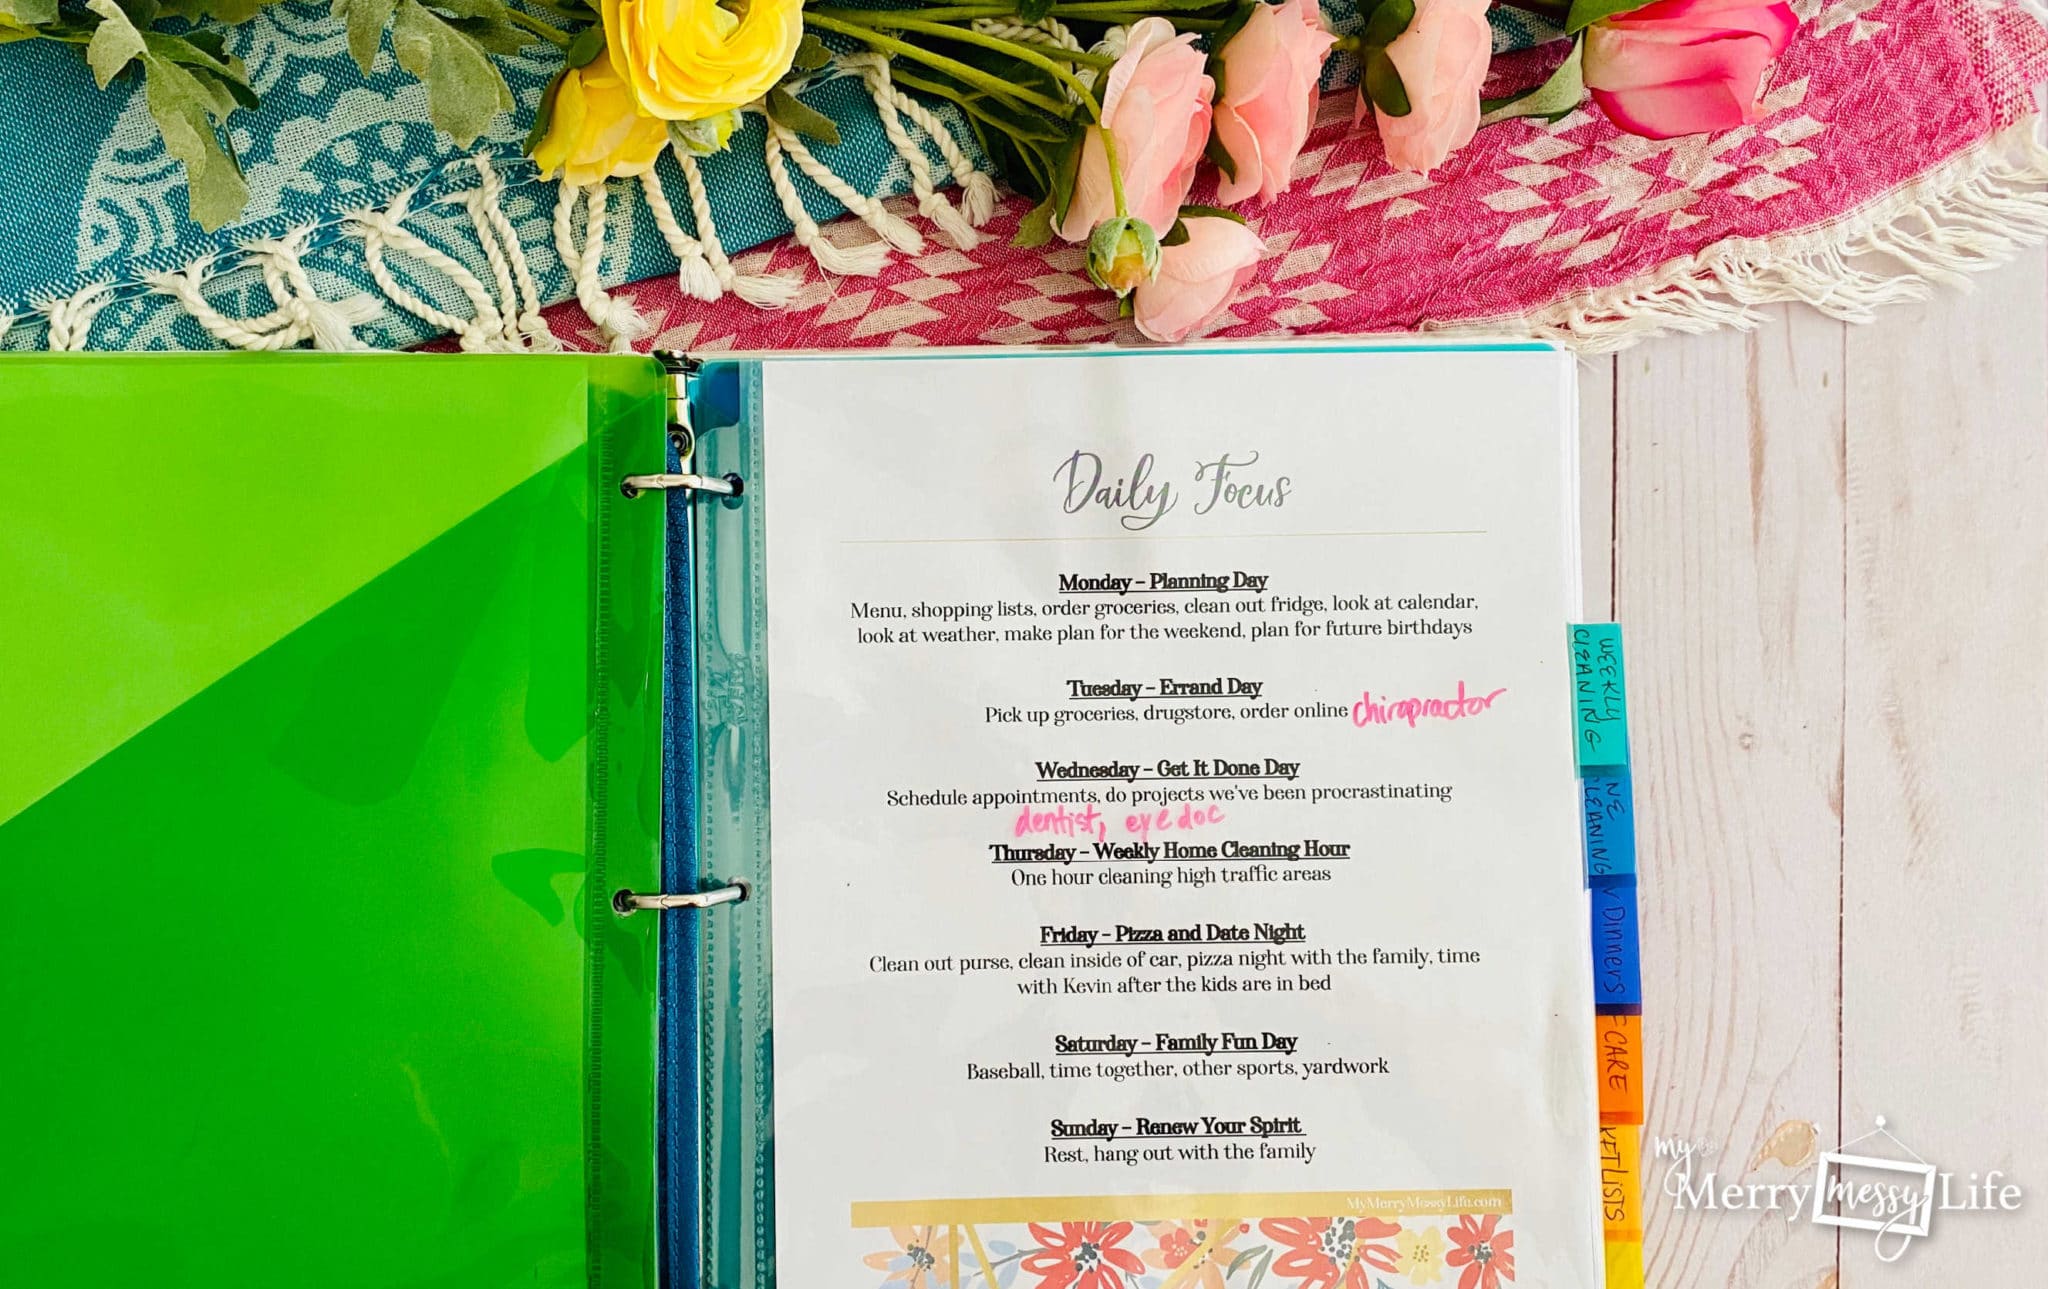 Daily Focus
Monday – Planning Day
Menu, shopping lists, order groceries, clean out fridge, look at calendar,
look at weather, make plan for the weekend, plan for future birthdays
Tuesday – Errand Day
Pick up groceries, drugstore, order online chiropractor
Wednesday – Get It Done Day
Schedule appointments, do projects we've been procrastinating
dentist, eye doc
Thursday – Weekly Home Cleaning Hour
One hour cleaning high traffic areas
Friday – Pizza and Date Night
Clean out purse, clean inside of car, pizza night with the family, time
with Kevin after the kids are in bed
Saturday – Family Fun Day
Baseball, time together, other sports, yardwork
Sunday – Renew Your Spirit
Rest, hang out with the family
MyMerryMessyLife.com
WEEKLY
CLEANING
Dinners
CARE
LISTS
my
Merry messy Life